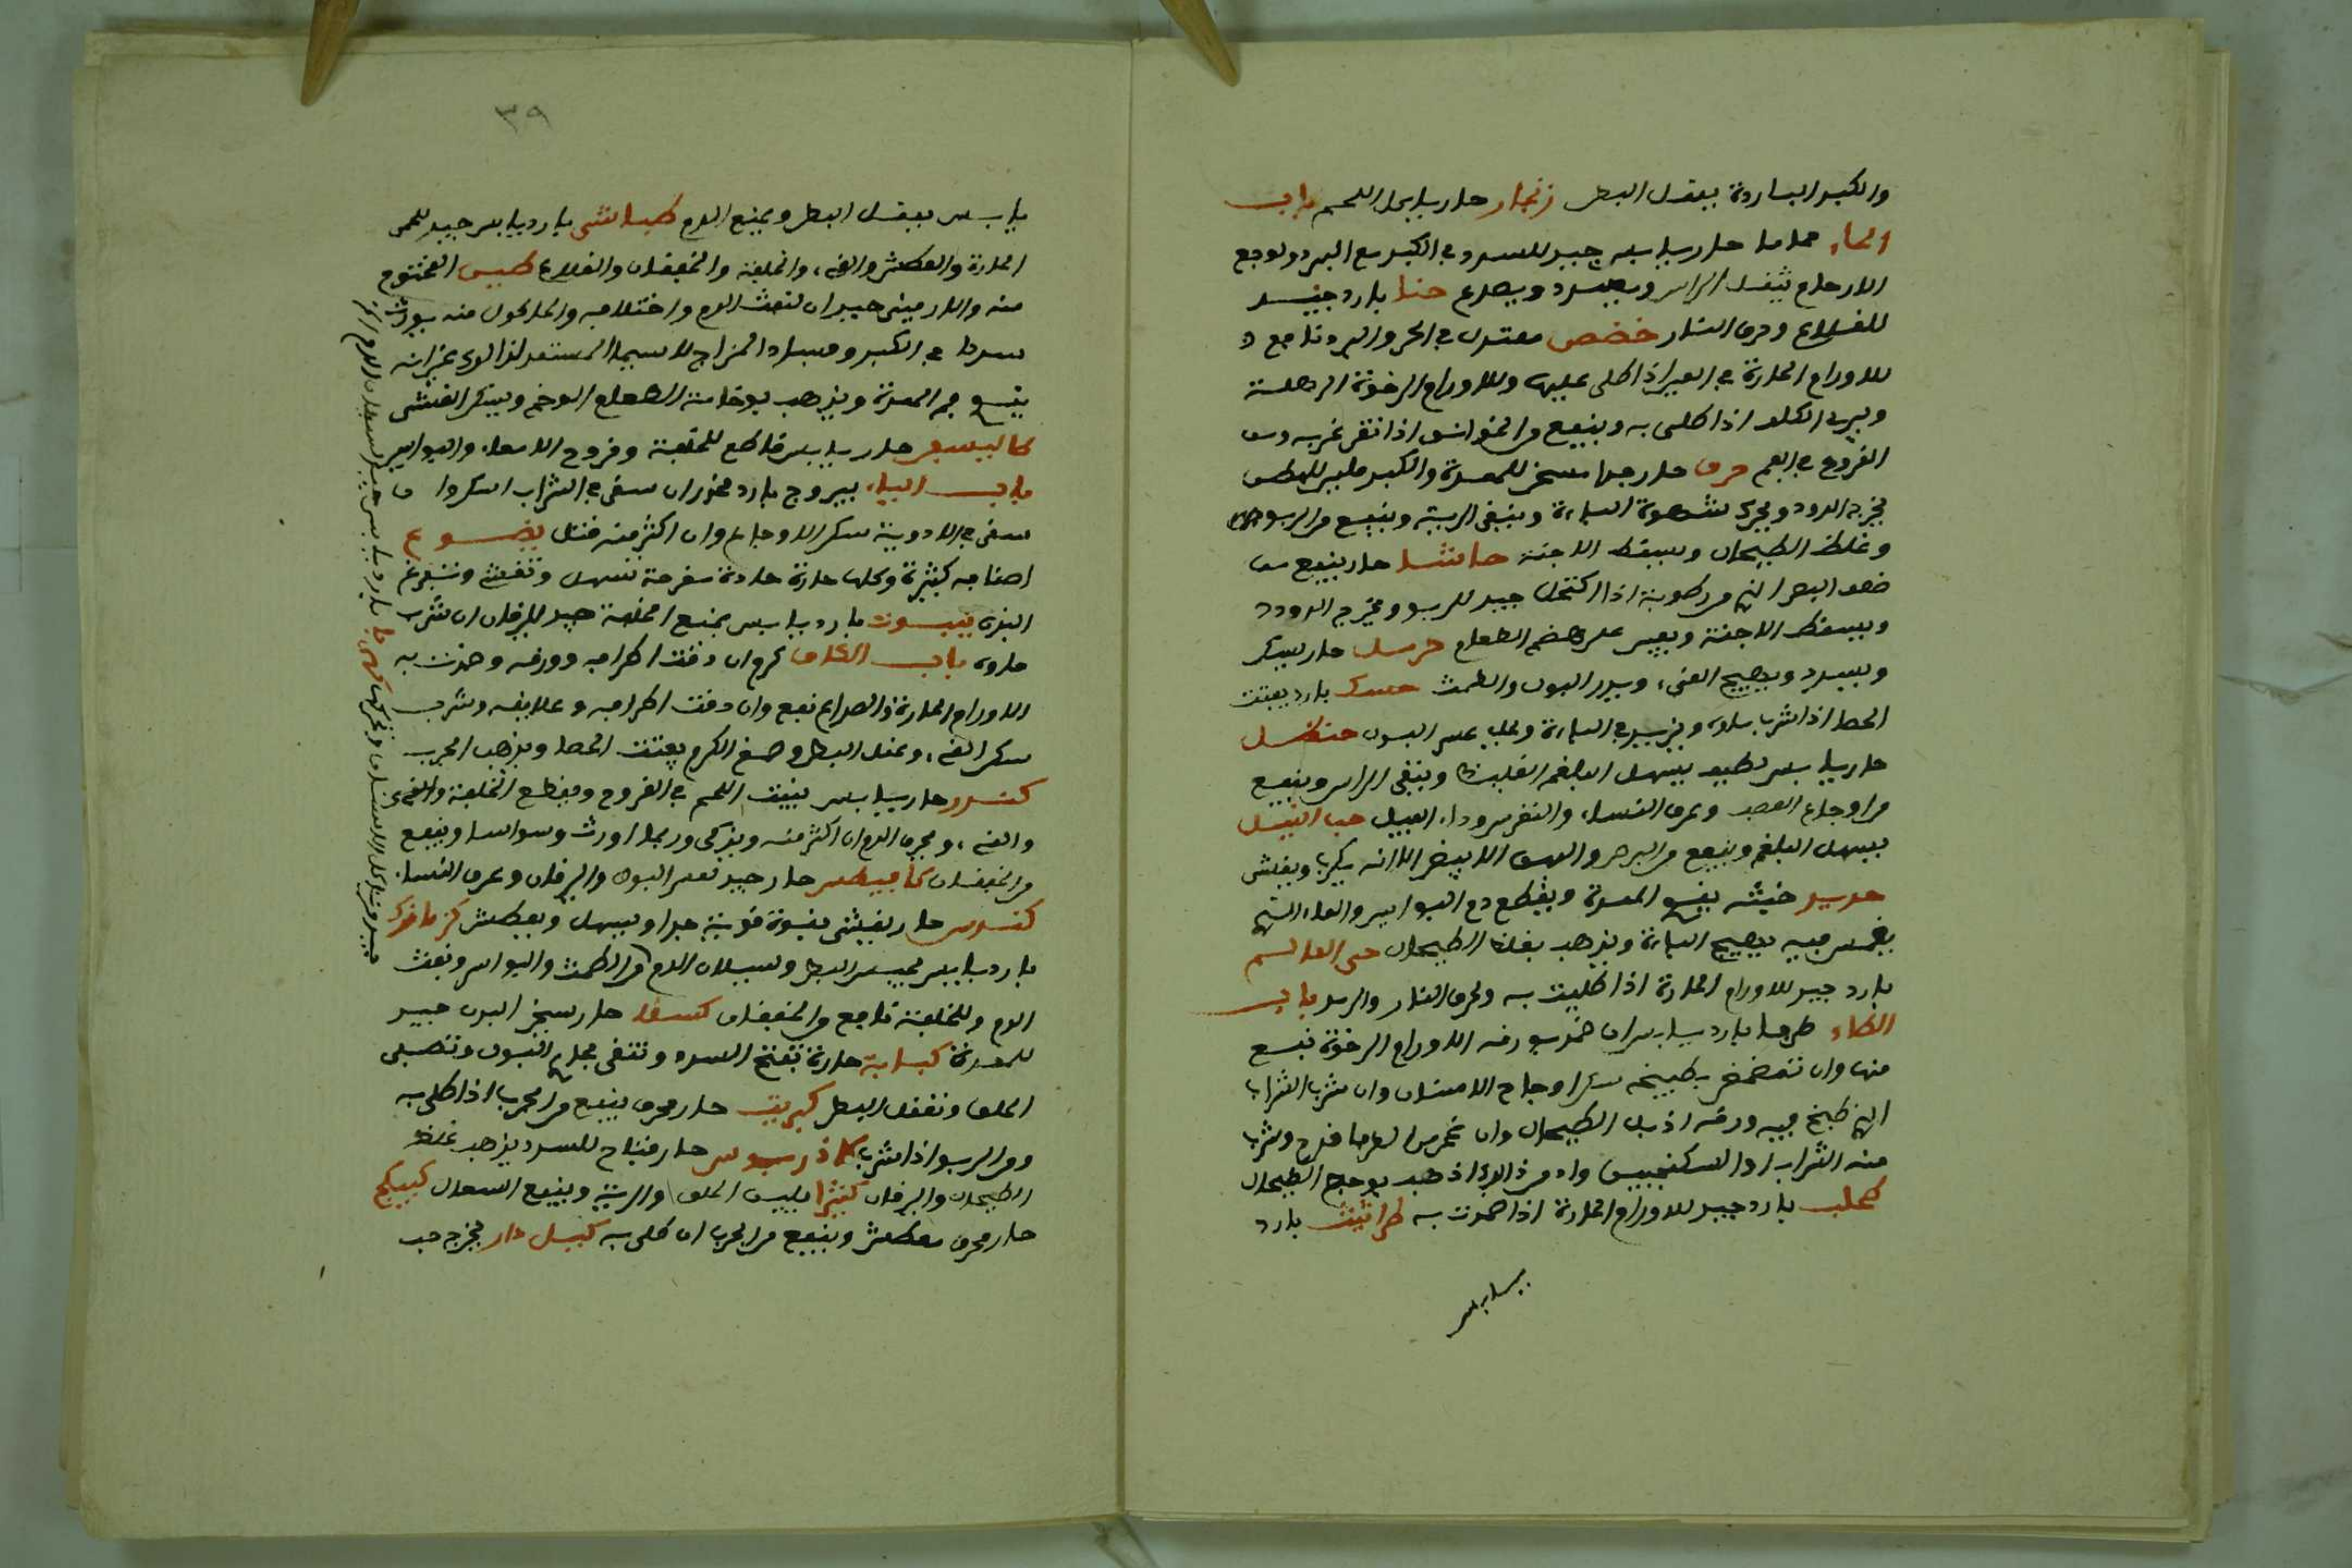 والكبد الباردة يعقل البطن زنجار حار يابس ياكل اللحم باب
الحاء حماما حار يابس جيد للسدد في الكبد مع البرد ولوجع
الارحام يثقل الراس ويسدد ويصدع حنا بارد جيد
للقلاع وحرق النار حضض معتدل في الحر والبرد نافع
للاورام الحارة في العين اذا طلي عليها وللاورام الرخوة الرهلة
ويبرئ الكلف اذا طلي به وينفع من الخوانيق اذا تغرغر به ومن
القروح في الفم حرف حار جدا مسخن للمعدة والكبد ملين للبطن
يخرج الدود ويحرك شهوة الباءة وينقي الرية وينفع من الربو
وغلظ الطحال ويسقط الاجنة حاشا حار ينفع من
ضعف البصر الذي من رطوبة اذا اكتحل جيد للربو ويخرج الدود
ويسقط الاجنة ويعين على هضم الطعام حرمل حار يسكر
ويسدد ويهيج القيء ويدر البول والطمث حسك بارد يفتت
الحصا اذا شرب ماؤه ويزيد في الباءة وعلى عسر البول حنظل
حار يابس لطيف يسهل البلغم الغليظ وينقي الراس وينفع
من اوجاع العصب وعرق النساء والنقرس وداء الفيل حب النيل
يسهل البلغم وينفع من البرص والبهق الابيض الا انه يكرب ويغشي
حديد خبثه يقوي المعدة ويقطع دم البواسير والماء الذي
يغمس فيه يهيج الباءة ويذهب بغلظ الطحال حي العالم
بارد جيد للاورام الحارة اذا طليت به ولحرق النار والرمد باب
الطاء طرفا بارد يابس ان ضمد بورقه الاورام الرخوة نفع
منها وان تمضمض بطبيخه سكن اوجاع الاسنان وان شرب الشراب
الذي طبخ فيه ورقه اذبل الطحال وان نجر من الطرفا قدح وشرب
منه الشراب او السكنجبين وادمن ذلك اذهب بوجع الطحال
طحلب بارد جيد للاورام الحارة اذا ضمدت به طراثيث بارد
يابس
٣٩
يابس يعقل البطن ويمنع الدم طباشير بارد يابس جيد للحمى
الحارة والعطش والقيء والخلفة والخفقان والقلاع طين المختوم
منه والارميني جيدان لنفث الدم واختلافه والماكول منه يورث
سددا في الكبد وفساد المزاج لا سيما المستعد لذلك غير انه
يقوي فم المعدة ويذهب بوخامة الطعام الوخم ويسكن الغشي
طاليسفر حار يابس قاطع للخلفة وقروح الامعاء والبواسير
باب الياء يبروح بارد مخدر ان سقي في الشراب اسكر وان
سقي في الادوية سكن الاوجاع وان اكثر منه قتل يتوع
اصنافه كثيرة وكلها حارة حادة مقرحة تسهل وتقيئ وتفرغ
البدن ينبوت بارد يابس يمنع الخلفة جيد لليرقان ان شرب
ماؤه باب الكاف كرم ان دقت اطرافه وورقه وضمدت به
الاورام الحارة والصداع نفع وان دقت اطرافه وعلايقه وشرب
سكن القيء وعقل البطن وصمغ الكرم يفتت الحصا ويذهب الجرب
كندر حار يابس ينبت اللحم في القروح ويقطع الخلفة
والقيء ويحرق الدم ان اكثر منه ويذكي وربما اورث وسواسا وينفع
من الخفقان كمافيطوس حار جيد لعسر البول واليرقان وعرق النساء
كندس حار يقيئ بقوة قوية جدا ويسهل ويعطش كزمازك
بارد يابس يحبس البطن وسيلان الدم من الطمث والبواسير ونفث
الدم وللخلفة نافع والخفقان كسفا حار يسخن البدن جيد
للمعدة كبابة حارة تفتح السدد وتنقي مجاري البول وتصفي
الحلق وتعقل البطن كبريت حار محرق ينفع من الجرب اذا طلي به
ومن الربو اذا شرب كماذريوس حار مفتاح للسدد يذهب غلظ
الطحال واليرقان كثيرا يلين الحلق والرية وينفع السعال كبيكج
حار محرق معطش وينفع من الجرب ان طلي به كبيل دار يخرج حب